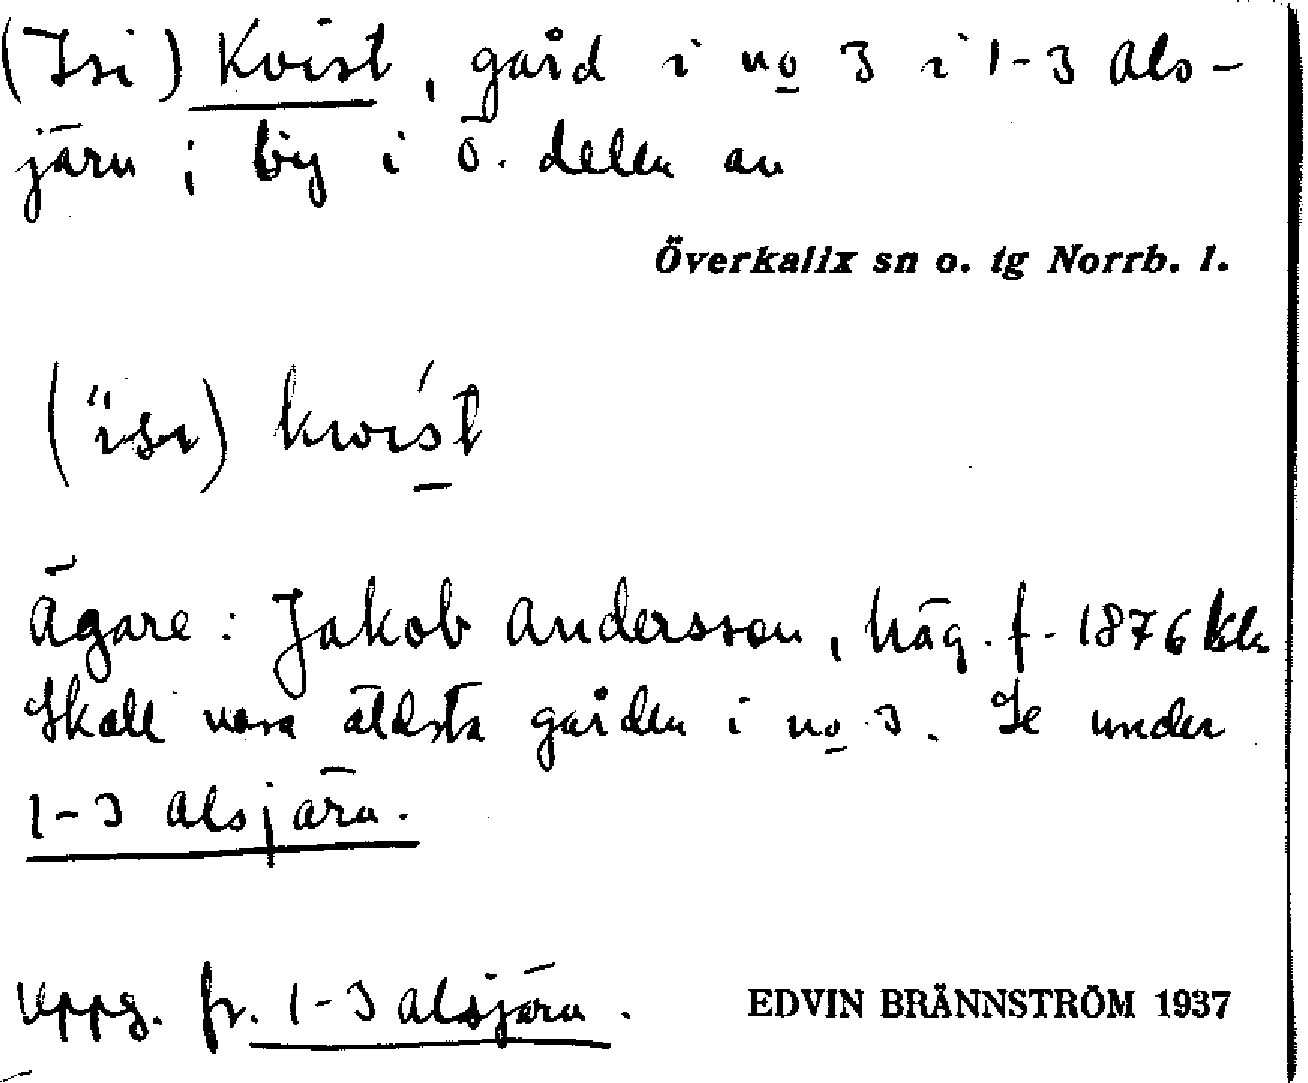 (Isi) Kvist, gård i no 3 i 1-3 Als-
järv; by i ö. delen av
Överkalix sn o. tg Norrb. l.
kwist
Ägare: Jakob Andersson, häg. f. 1876
Skall vara äldsta gården i no 3. Se under
1-3 Alsjärv.
Uppg. fr. 1-3 Alsjärv.
EDVIN BRÄNNSTRÖM 1937